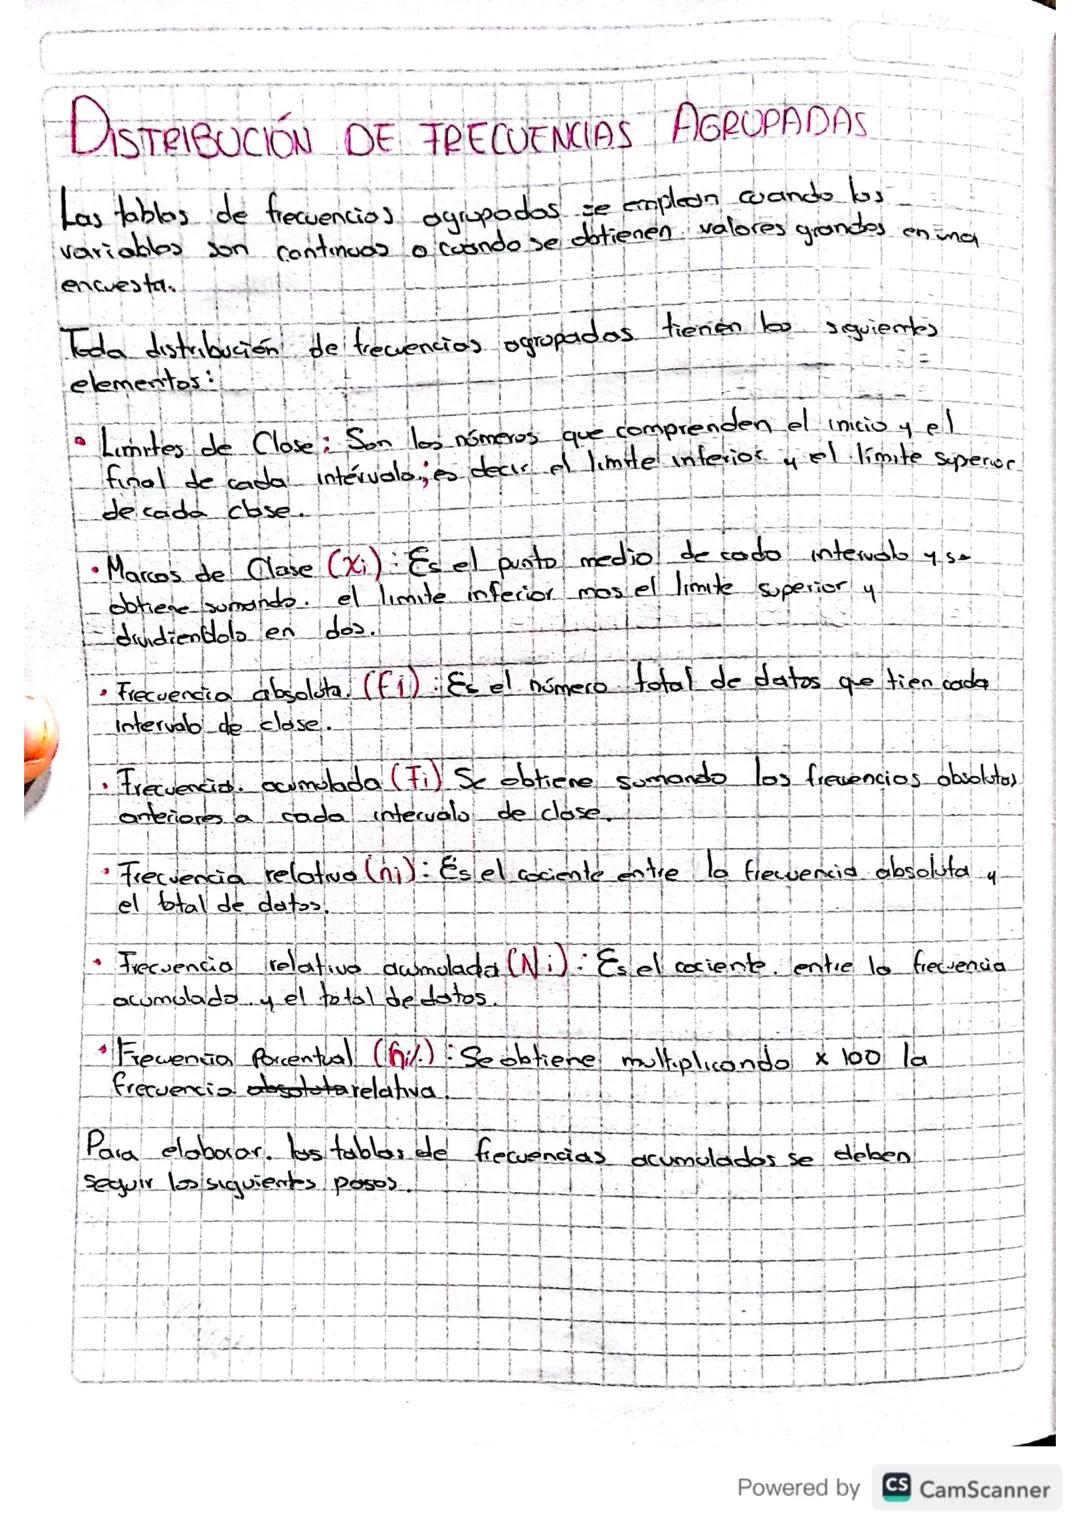 DISTRIBUCIÓN DE FRECUENCIAS AGRUPADAS
Las tablas de frecuencias agrupadas se emplean cuando las
variables son continuas o cuando se obtienen valores grandes en una
encuesta.
Toda distribución de frecuencias agropadas tienen los siguientes
elementos:
• Límites de Clase: Son los números que comprenden el inicio y el
final de cada intérvalo; es decir el límite inferior y el límite superior
de cada clase.
• Marcos de Clase (xi): Es el punto medio de cada intervalo y se
obtiene sumando el limite inferior mas el limite superior y
dividiendolo en dos.
• Frecuencia absoluta (fi): Es el número total de datos que tien cada
intervalo de clase.
• Frecuencia acumulada (Fi) Se obtiene sumando las frecuencias absolutas
anteriores a cada intervalo de clase.
• Frecuencia relativa (ni): Es el cociente entre la frecuencia absoluta y
el total de datos.
• Frecuencia relativa acumulada (Ni): Es el cociente entre la frecuencia
acumulada y el total de datos.
• Frecuencia Porcentual (hi%): Se obtiene multiplicando x 100 la
frecuencia absoluta relativa.
Para elaborar los tablas de frecuencias acumuladas se deben
seguir los siguientes pasos.
Powered by CS CamScanner